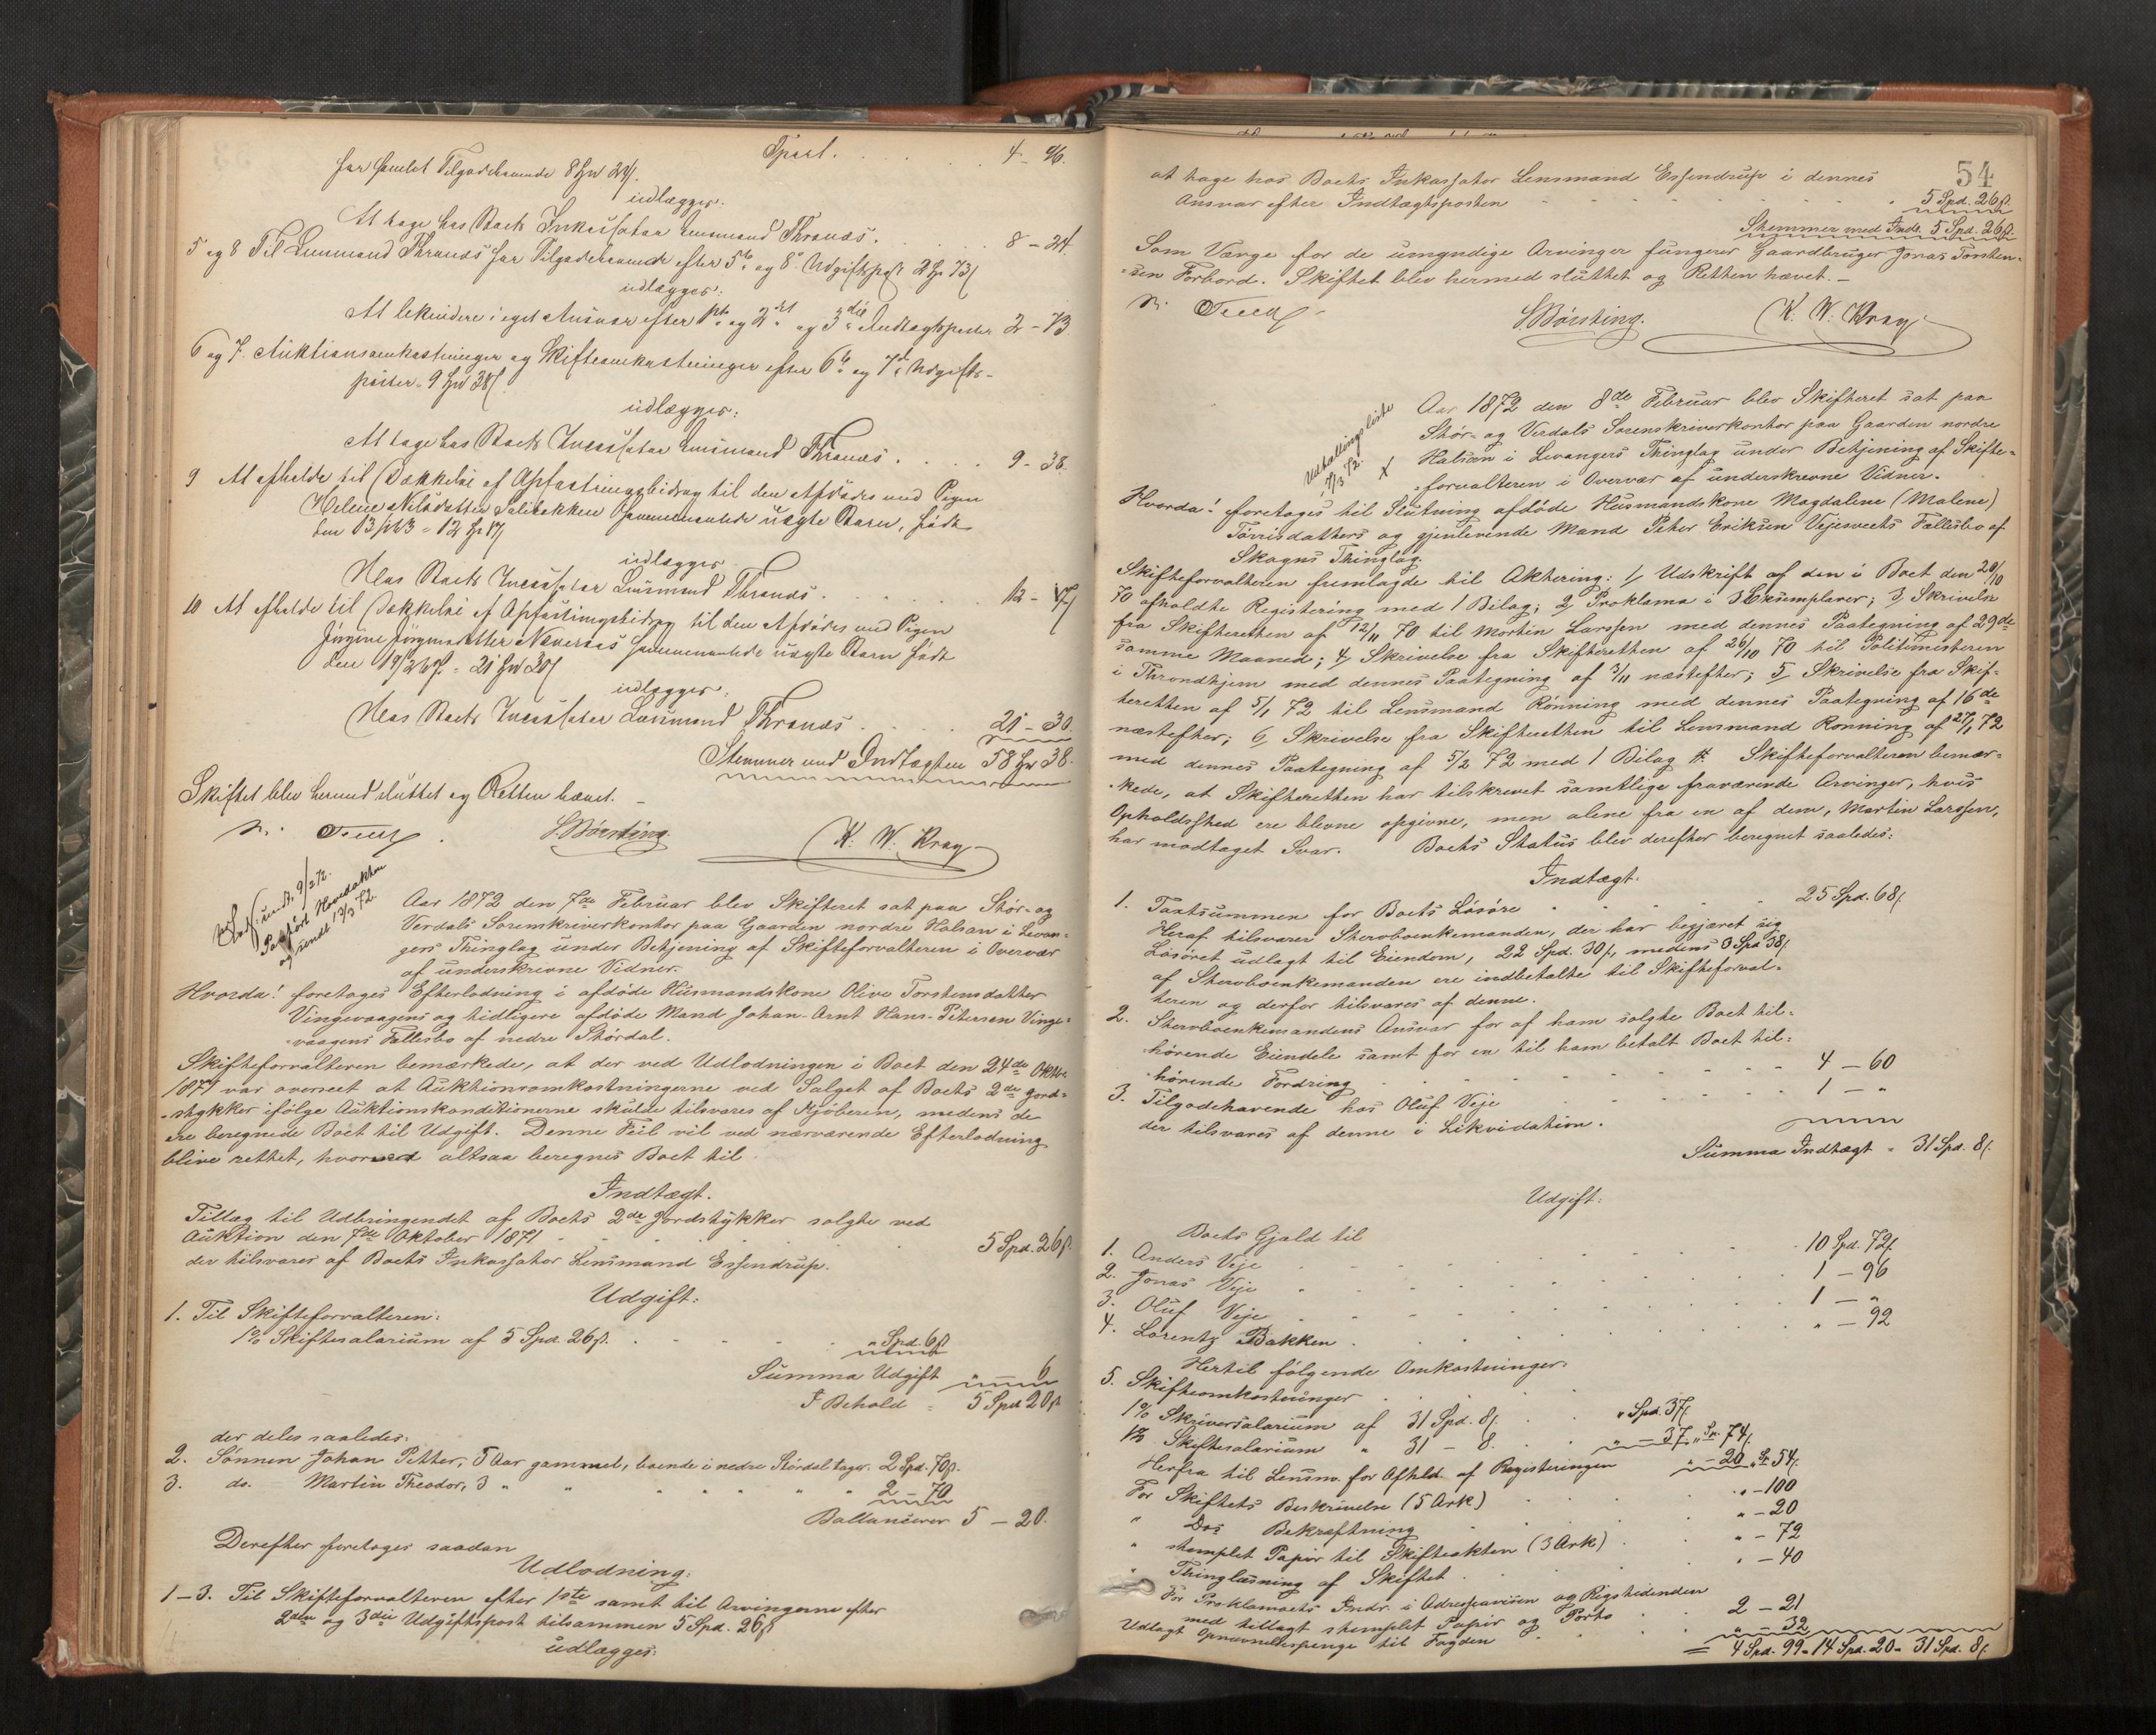 Tpart. . . . . 4 - 96.
for samlet Tilgodehavende 8 Spd 24ß.
udlægges:
At tage hos Boets Inkassator Lensmand Thranæs. . . . . 8 - 24.
5 og 8 Til Lensmand Thranæs for Tilgodehavende efter 5te og 8de Udgiftspost 2 Sp. 73ß
udlægges:
At likvidere i eget Ansvar efter 1ste og 2den og 3die Indtægtsposter 2 - 73
6 og 7. Auktionsomkostninger og Skifteomkostninger efter 6te og 7de Udgifts-
poster = 9 Spd 38ß.
udlægges:
At tage hos Boets Incassator Lensmand Thranæs. . . . . 9 - 38.
9 At afholde til Dækkelse af Opfostringsbidrag til den Afdødes med Pigen
Helene Nilsdatter sammenavlede uægte Barn, født
den 13/ 63 = 12 Sp 17ß
udlægges
Hos Boets Incassator Lensmand Thranæs. . . . . 12 - 17
10 At afholde til Dækkelse af Opfostringsbidrag til den Afdødes med Pigen
Jørgine Jørgensdatter Næveraas sammenavlede uægte Barn født
den 19/2 69. = 21 Spd 30ß
udlægges.
Hos Boets Incassator Lensmand Thranæs . . . . 21 - 30.
Stemmer med Indtægten 58 Spd 38.
Skiftet blev hermed sluttet og Retten hævet. -
S. Børsting. K. W. Kray
Hovedakten
og sendt 13/3 72.
Aar 1872 den 7de Februar blev Skifteret sat paa Stør- og
Verdals Sorenskriverkontor paa Gaarden nordre Halsan i Levan=
gers Thinglag under Betjening af Skifteforvalteren i Overvær
af underskrevne Vidner.
Hvorda! foretoges Efterlodning i afdøde Husmandskone Olive Torstensdatter
Vingevaagens og tidligere afdøde Mand Johan-Arnt Hans-Petersen Vinge=
vaagens Fællesbo af nedre Størdal.
Skifteforvalteren bemærkede, at der ved Udlodningen i Boet den 24de Oktbr.
1871 var overseet at Auktionsomkostningerne ved Salget af Boets 2de Jord=
stykker ifølge Auktionskonditionerne skulde tilsvares af Kjøberen, medens de
ere beregnede Boet til Udgift. Denne Feil vil ved nærværende Efterlodning
blive rettet, hvorved altsaa beregnes Boet til
Indtægt.
Tillæg til Udbringendet af Boets 2de Jordstykker solgte ved
Auktion den 7de Oktober 1871 . . . . . 5 Spd. 26ß.
der tilsvares af Boets Inkassator Lensmand Essendrup.
Udgift:
1. Til Skifteforvalteren:
1% Skiftesalarium af 5 Spd. 26ß. . . . . " Spd. 6ß
Summa Udgift " 6
I Behold = 5 Spd 20ß.
der deles saaledes:
2. Sønnen Johan Petter, 5 Aar gammel, boende i nedre Størdal tager. 2 Spd. 70ß.
3. do. Martin Theodor, 3 " " " " " " " 2 - 70
Ballancerer 5 - 20.
Derefter foretoges saadan
Udlodning:
1-3. Til Skifteforvalteren efter 1ste samt til Arvingerne efter
2den og 3die Udgiftspost tilsammen 5 Spd. 26ß
udlægges:
54
at tage hos Boets Inkassator Lensmand Essendrup i dennes
Ansvar efter Indtægtsposten . . . . . 5 Spd. 26ß.
Stemmer med Indt. 5 Spd. 26ß.
Som Værge for de umyndige Arvinger fungerer Gaardbruger Jonas Torsten=
sen Forbord. Skiftet blev hermed sluttet og Retten hævet. -
S. Børsting. K. W. Kray
Udtællingsliste
7/3 72. X
Aar 1872 den 8de Februar blev Skifteret sat paa
Stør- og Verdals Sorenskriverkontor paa Gaarden nordre
Halsan i Levangers Thinglag under Betjening af Skifte=
forvalteren i Overvær af underskrevne Vidner.
Hvorda! foretoges til Slutning afdøde Husmandskone Magdalene (Malene)
Tørrisdatters og gjenlevende Mand Peter Eriksen Vejesveets Fællesbo af
Skogns Thinglag
Skifteforvalteren fremlagde til Aktering: 1, Udskrift af den i Boet den 20/10
70 afholdte Registering med 1 Bilag; 2, Proklama i 3 Exemplarer; 3, Skrivelse
fra Skifteretten af 12/11 70 til Mortin Larssen med dennes Paategning af 29de
samme Maaned; 4, Skrivelse fra Skifteretten af 26/10 70 til Politimesteren
i Throndhjem med dennes Paategning af 3/11 næstefter; 5, Skrivelse fra Skif=
teretten af 5/1 72 til Lensmand Rønning med dennes Paategning af 16de
næstefter; 6, Skrivelse fra Skifteretten til Lensmand Rønning af 27/1 72
med dennes Paategning af 5/2 72 med 1 Bilag #. Skifteforvalteren bemær=
kede, at Skifteretten har tilskrevet samtlige fraværende Arvinger, hvis
Opholdssted ere blevne opgivne, men alene fra en af dem, Martin Larssen,
har modtaget Svar. Boets Status blev derefter beregnet saaledes:
Indtægt.
1. Taxtsummen for Boets Løsøre . . . . . 25 Spd. 68ß
Heraf tilsvarer Stervboenkemanden, der har begjæret sig
Løsøret udlagt til Eiendom, 22 Spd. 30ß, medens 3 Spd 38ß
af Stervboenkemanden ere indbetalte til Skifteforval=
teren og derfor tilsvares af denne.
2. Stervboenkemandens Ansvar for af ham solgte Boet til=
hørende Eiendele samt for en til ham betalt Boet til=
hørende Fordring . . . . . 4 - 60
3. Tilgodehavende hos Oluf Veje . . . . . 1 - "
der tilsvares af denne i Likvidation.
Summa Indtægt = 31 Spd. 8ß.
Udgift:
Boets Gjæld til
1. Anders Veje . . . . . 10 Spd. 72ß
2. Jonas Veje . . . . . 1 - 96
3. Oluf Veje . . . . . 1 - "
4. Lorentz Bakken . . . . . " - 92
Hertil følgende Omkostninger:
5. Skifteomkostninger
1% Skriversalarium af 31 Spd. 8ß . . . " Spd. 37ß
1% Skiftesalarium " 31 - 8. . . " - 37. " Sp. 74ß
Herfra til Lensm. for Afhld. af Registeringen " - 20 " Sp. 54ß
For Skiftets Beskrivelse (5 Ark) . . . " - 100
" Dos Bekræftning . . . " - 20
" stemplet Papir til Skifteakten (3 Ark) . . " - 72
" Thinglæsning af Skiftet . . . " - 40
For Proklamaets Indr. i Adresseavisen og Rigstidenden
med tillagt stemplet Papir og Porto . . 2 - 21
Udlagt Opnævnelsespenge til Fogden . . " - 32
= 4 Spd. 99 = 14 Spd. 20 = 31 Spd. 8ß